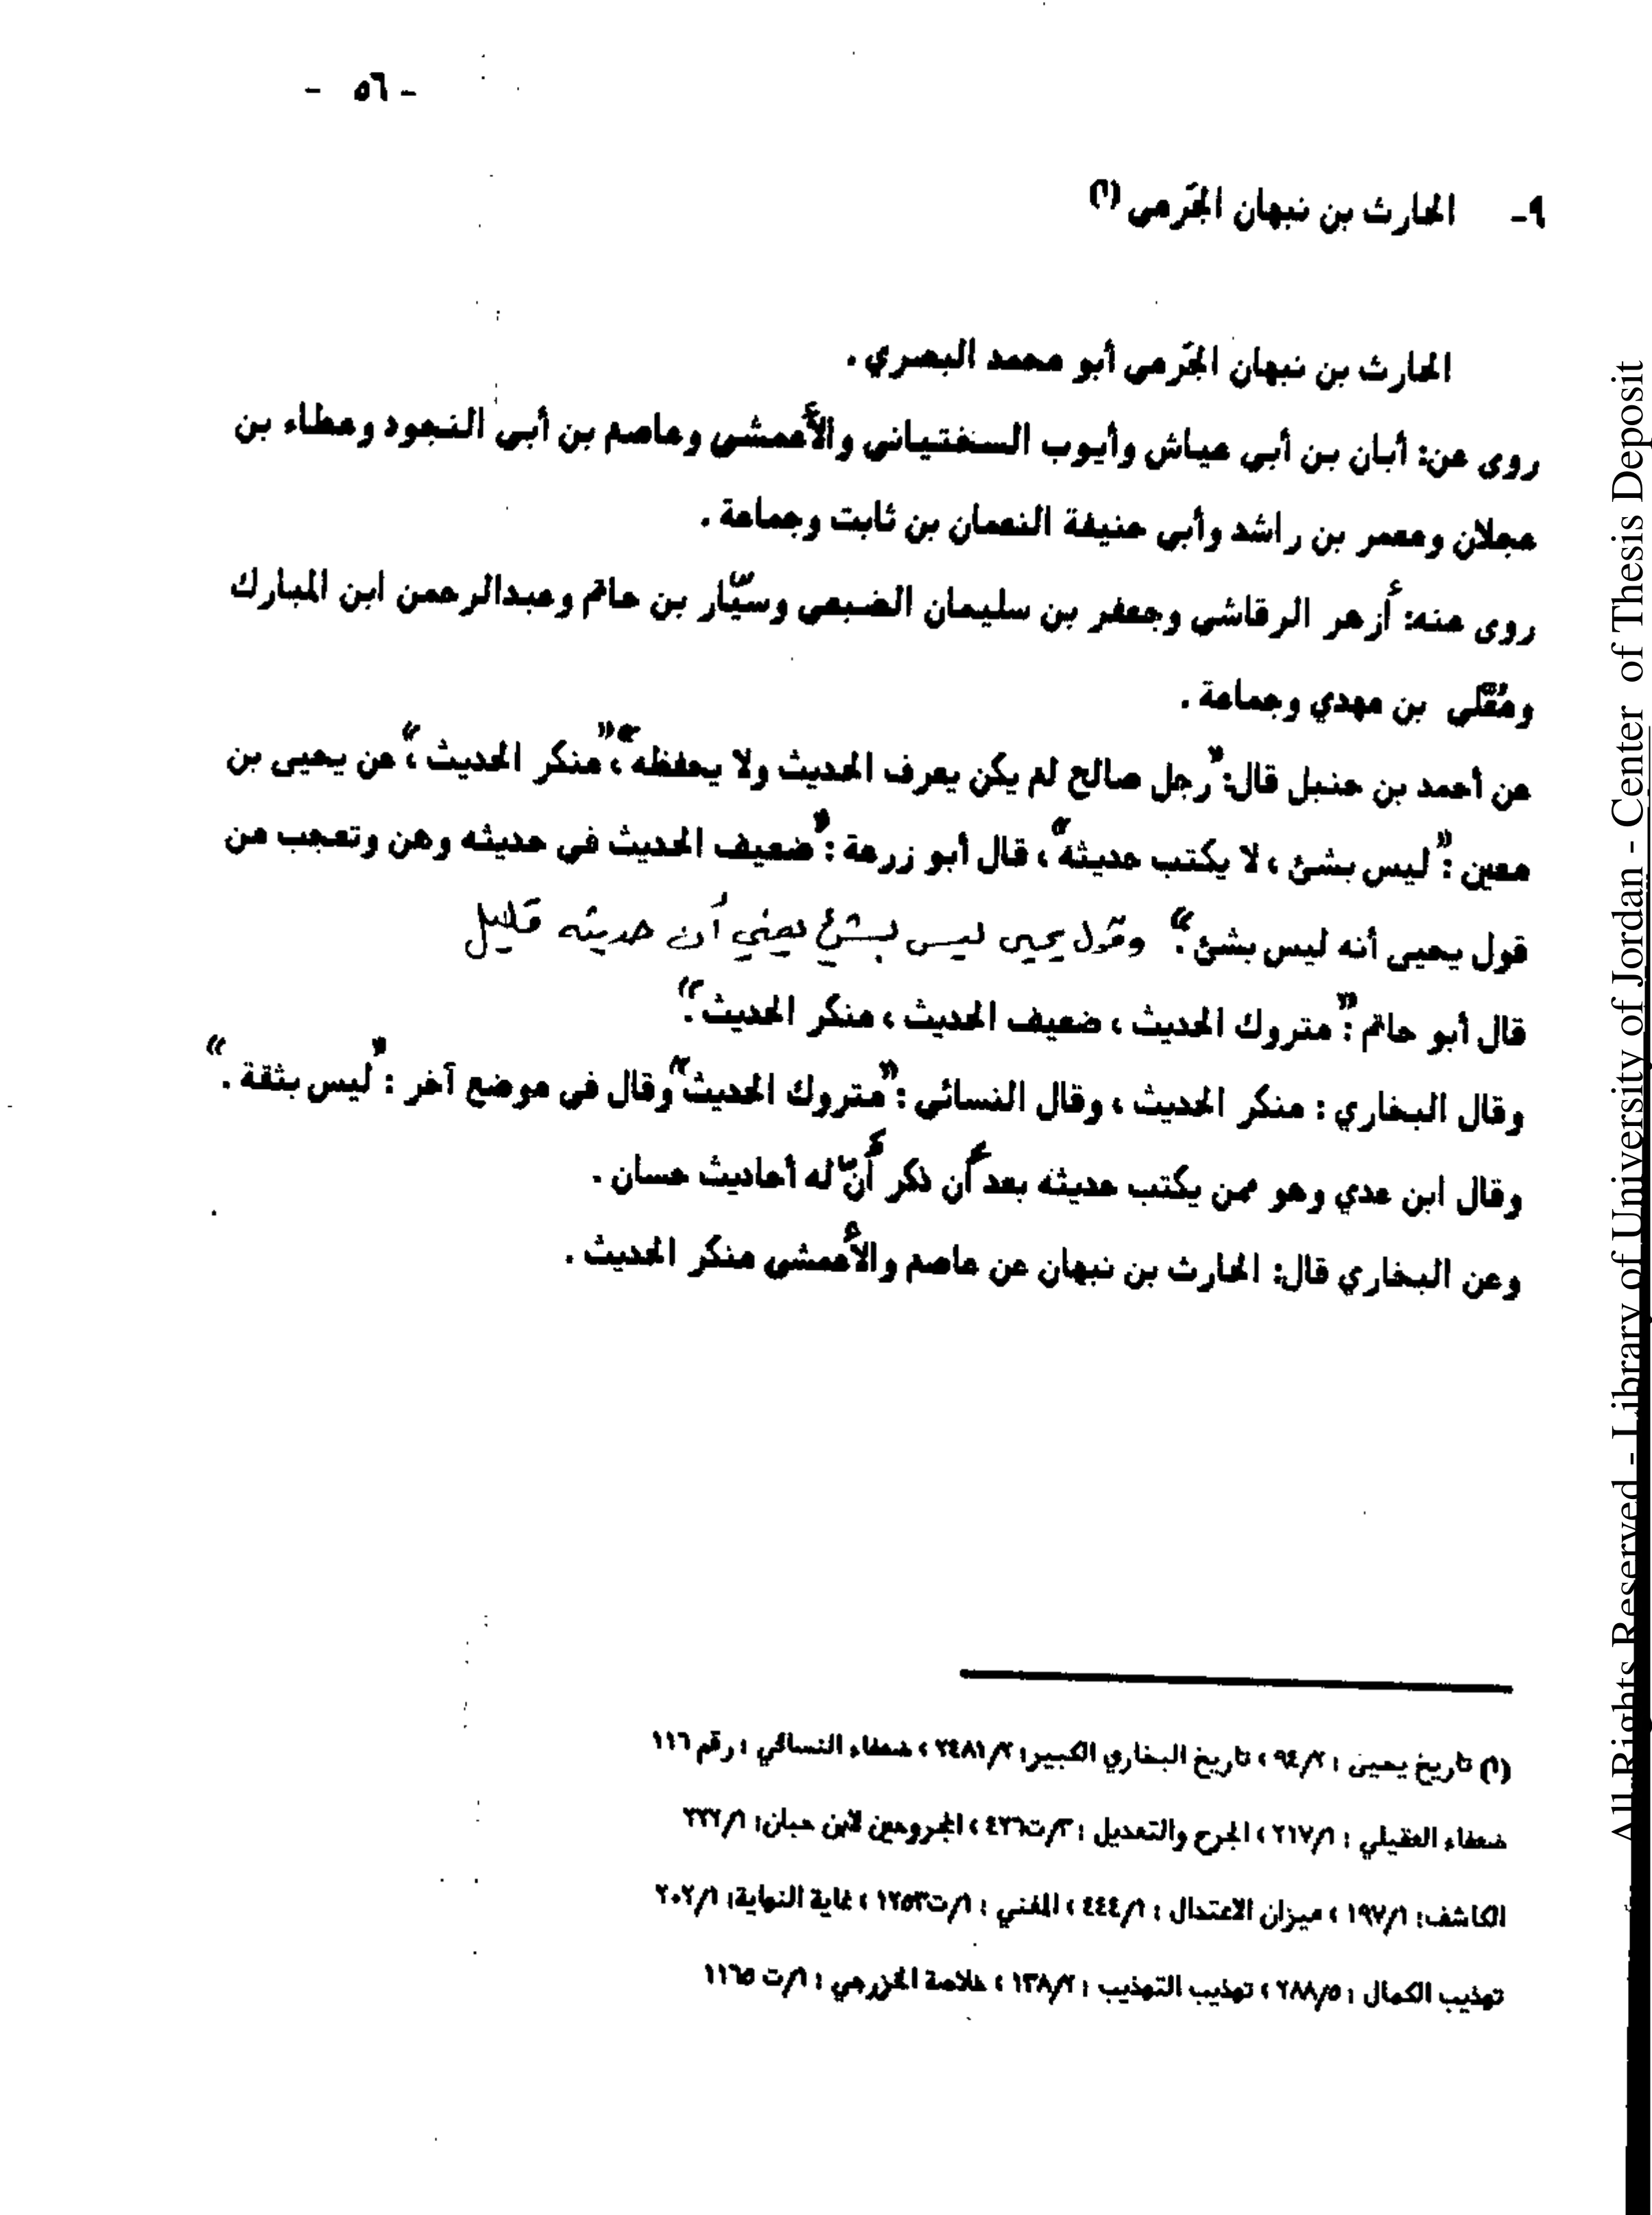 - ٥٦ -
٩- الحارث بن نبهان الجَرمي (١)
الحارث بن نبهان الجَرمي أبو محمد البصري .
روى عن: أبان بن أبي عياش وأيوب السختياني والأعمش وعاصم بن أبي النجود وعطاء بن
عجلان ومعمر بن راشد وأبي حنيفة النعمان بن ثابت وجماعة .
روى عنه: أزهر الرقاشي وجعفر بن سليمان الضبعي وسيّار بن حاتم وعبدالرحمن ابن المبارك
ومُعَّلى بن مهدي وجماعة .
عن أحمد بن حنبل قال: "رجل صالح لم يكن يعرف الحديث ولا يحفظه"، "منكر الحديث"، عن يحيى بن
معين : "ليس بشئ ، لا يكتب حديثه" ، قال أبو زرعة : "ضعيف الحديث في حديثه وهن وتعجب من
قول يحيى أنه ليس بشئ". وقول يحيى ليس بشئ يعني أن حديثه قليل
قال أبو حاتم : "متروك الحديث ، ضعيف الحديث ، منكر الحديث".
وقال البخاري : منكر الحديث ، وقال النسائي : "متروك الحديث" وقال في موضع آخر : "ليس بثقة ."
وقال ابن عدي وهو ممن يكتب حديثه بعد أن ذكر أنّ له أحاديث حسان .
وعن البخاري قال: الحارث بن نبهان عن عاصم والأعمش منكر الحديث .
(١) تاريخ يحيى : ٩٤/٢ ، تاريخ البخاري الكبير: ٢٤٨١/٢ ، ضعفاء النسائي : رقم ١١٦
ضعفاء العقيلي : ٢١٧/١ ، الجرح والتعديل : ٣/ت٤٢٦ ، المجروحين لابن حبان: ٢٢٢/١
الكاشف: ١٩٧/١ ، ميزان الاعتدال : ٤٤٤/١ ، المغني : ١/ت١٢٥٣ ، غاية النهاية: ٢٠٢/١
تهذيب الكمال : ٢٨٨/٥ ، تهذيب التهذيب : ١٣٨/٢ ، خلاصة الخزرجي : ١/ت ١١٦٥
All Rights Reserved - Library of University of Jordan - Center of Thesis Deposit